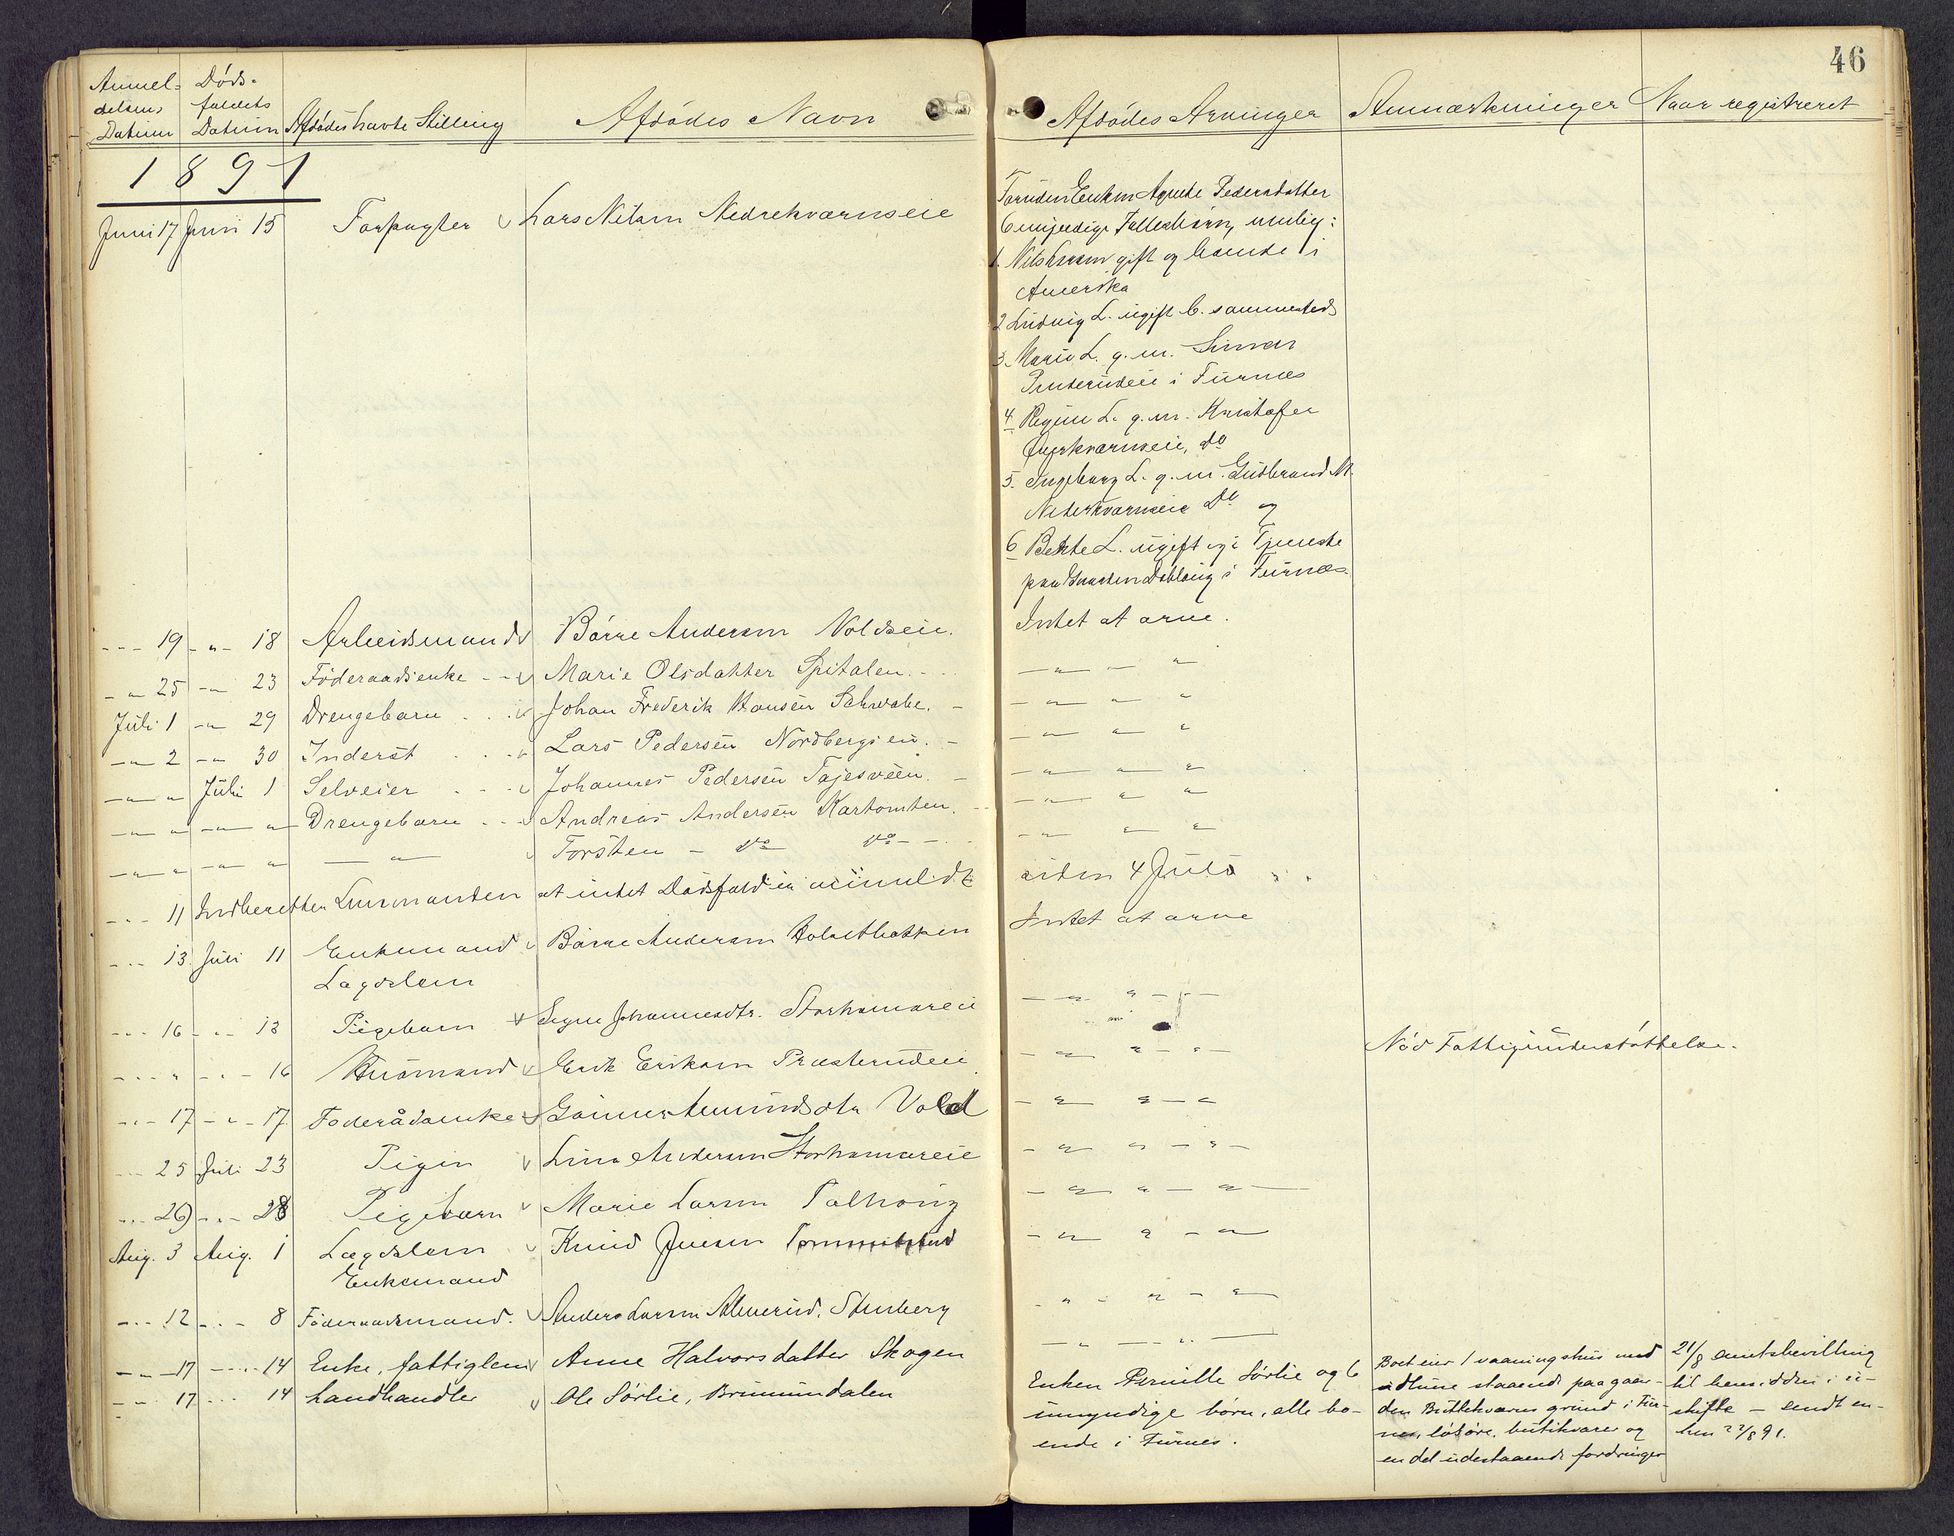 46
Anmel- Døds-
delsens faldets
Datum Datum Afdødes havte Stilling Afdødes Navn Afdødes Arvinger Anmærkninger Naar registreret
1891
Juni 17 Juni 15 Forpagter Lars Nilsen Nedrekværnseie
Foruden Enken Agnethe Pedersdatter
6 myndige Fællesbørn, nemlig:
1. Nils Larsen gift og boende i
Amerika
2 Ludvig L. ugift b. sammesteds
3. Marie L. g. m. Simen
i Furnæs
4 Regine L. g. m. Kristofer
Øvrekværnseie, do
5. Ingeborg L. g. m. Gudbrand
Nedrekværnseie Do og
6 L. ugift og i Tjeneste
paa Gaarden Dobloug i Furnæs
--- 19 -"- 18 Arbeidsmand Börre Andersen Voldseie. Intet at arve.
-"- 25 -"- 23 Föderaadsenke Marie Olsdatter Spitalen. -"- "
Juli 1 -"- 29 Drengebarn Johan Frederik Hansen Schwabe. -"- " "
-"- 2 -"- 30 Inderst Lars Pedersen Nordbergseie. -"- " "
-"- " Juli 1 Selveier Johannes Pedersen -"- " "
-"- " -"- " Drengebarn Andreas Andersen Kartomten. -"- " "
-"- " -"- " -"- Torsten - do do -"- " "
--- 11 Indberetter Lensmanden at intet Dødsfald er anmeldt siden 4 Juli
--- 13 Juli 11 Enkemand Börre Andersen Intet at arve
Lægdslem
--- 16 -"- 13 Pigebarn Signe Johannesdtr. Storhamareie -"- " - " -
--- " --- 16 Husmand Erik Eriksen Præsterudeie -"- " - " - Nød Fattigunderstøttelse.
--- 17 -"- 17. Foderådsenke Amundsdtr Vold -"- " - "
--- 25 Juli 23 Pigen Lina Andersen Storhamareie -"- " - " -
--- 29 --- 28 Pigebarn Marie Larsen -"- " - " -
Aug. 3 Aug. 1 Lægdslem Knud Jensen -"- " - "
Enkemand
--- 12 --- 8 Föderaadsmand. Anders Larsen Stenberg -"- " - "
-"- 17 --- 14 Enke, fattiglem Anne Halvorsdatter Skogen -"- -"-
-"- 17 --- 14 Landhandler Ole Sørlie, Brumunddalen
Enken Pernille Sørlie og 6
umyndige børn, alle bo-
ende i Furnes.
Boet eier 1 vaaningshus med
udhuse staaende paa gaar-
den Bustekværns grund i Fur-
nes, løsøre, butikvarer og
en del udestaaende fordringer
21/8 amtsbevilling
til hensidden i u-
skifte - sendt en-
ken 22/8 91.